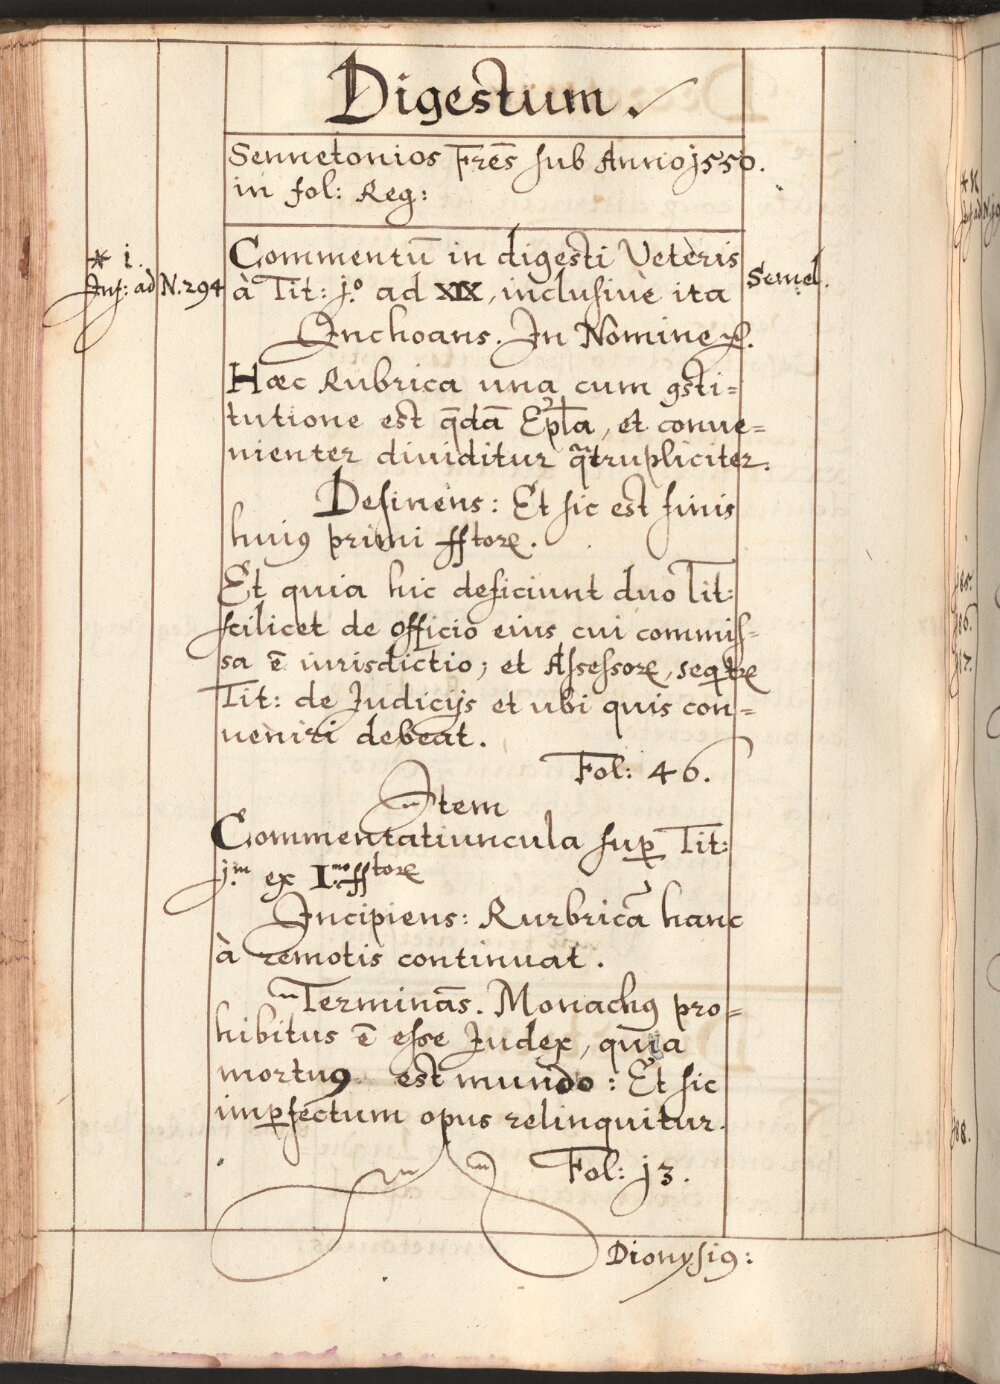 Digestum.
Sennetonios Fres̃ sub Anno j550.
in fol: Reg:
* i.
Inf: ad N. 294
Commentū in digesti Veteris
Semel.
à Tit: j.º ad XIX, inclusiuè ita
Inchoans. In Nomine
Hæc Rubrica una cum 9sti=
tutione est q̄dā Ep̃la, et conue=
nienter diuiditur q̃trupliciter.
Desinens: Et sic est finis
huiꝰ primi fftorꝝ.
Et quia hic deficiunt duo Tit:
scilicet de officio eius cui commiſ=
sa ē iurisdictio; et Assessorꝝ, seqtꝛ
Tit: de Judicijs et ubi quis con=
ueniri debeat.
Fol: 46.
Item
Commentatiuncula suꝑ Tit:
j.m ex I.mo fftorꝝ
Incipiens: Rurbricā hanc
à remotis continuat.
Terminās. Monachꝰ pro=
hibitus ē esse Judex, quia
mortuꝰ est mundo: Et sic
imꝑfectum opus relinquitur.
Fol: j3.
Dionysiꝰ: